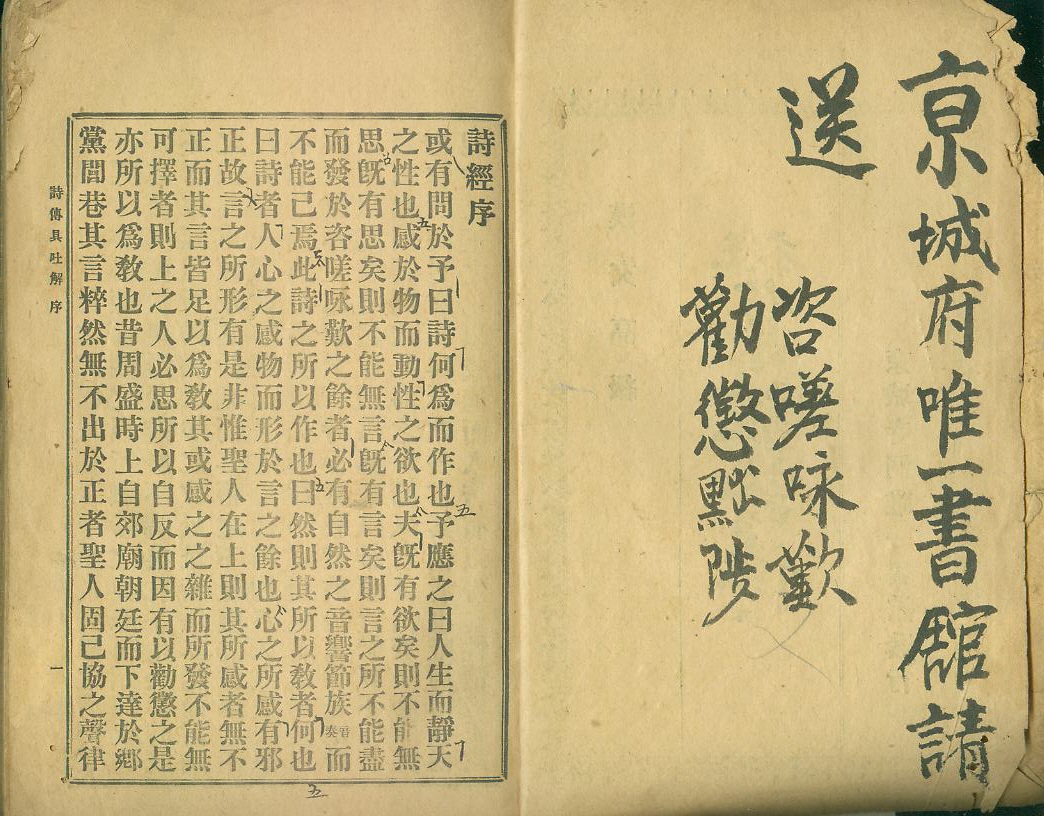 京城府唯一書館請
送
咨嗟咏歎
勸懲黜陟
詩經序
或有問於予曰詩何爲而作也予應之曰人生而靜天
之性也感於物而動性之欲也夫旣有欲矣則不能無
思旣有思矣則不能無言旣有言矣則言之所不能盡
而發於咨嗟咏歎之餘者必有自然之音響節族音奏而
不能已焉此詩之所以作也曰然則其所以敎者何也
曰詩者人心之感物而形於言之餘也心之所感有邪
正故言之所形有是非惟聖人在上則其所感者無不
正而其言皆足以爲敎其或感之之雜而所發不能無
可擇者則上之人必思所以自反而因有以勸懲之是
亦所以爲敎也昔周盛時上自郊廟朝廷而下達於鄕
黨閭巷其言粹然無不出於正者聖人固已協之聲律
詩傳具吐解 序
一